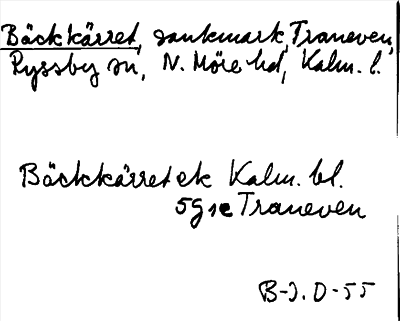 Bäckkärret, sankmark, Traneven,
Ryssby sn, N. Möre hd, Kalm. l.
Bäckkärret ek Kalm. bl.
5G1e Traneven
B-J. O-55